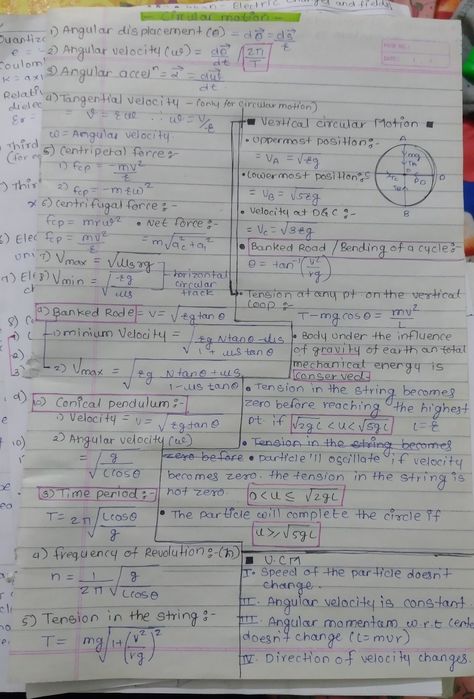 Circular motion
1) Angular displacement (θ) = dθ = ds/r
2) Angular velocity (ω) = dθ/dt, 2π/T
3) Angular accelⁿ = α = dω/dt
4) Tangential velocity - (only for circular motion)
= v = rω ∴ ω = v/r
ω = Angular velocity
5) Centripetal force :-
1) fcp = -mv²/r
2) fcp = -mrω²
6) Centrifugal force :-
fcp = mrω² • Net force :-
fcp = mv²/r = m√(a²c + a²t)
7) Vmax = √(μsrg)
8) Vmin = √(rg/μs) horizontal circular track
9) Banked Rode = V = √(rg tanθ)
1) minimum Velocity = √(rg Ntanθ-μs / 1 + μs tanθ)
2) Vmax = √(rg Ntanθ+μs / 1-μs tanθ)
10) Conical pendulum :-
1) Velocity = V = √(rg tanθ)
2) Angular velocity (ω)
= √(g / Lcosθ)
3) Time period :-
T = 2π √(Lcosθ / g)
4) frequency of Revolution :- (n)
n = 1/2π √(g / Lcosθ)
5) Tension in the string :-
T = mg √(1+(v²/rg)²)
■ Vertical circular Motion ■
• Uppermost position :-
= VA = √rg
• Lowermost position :-
= VB = √5rg
• Velocity at D&C :-
= Vc = √3rg
• Banked Road / Bending of a cycle :-
θ = tan⁻¹(v²/rg)
A
mg
TA
D
B
• Tension at any pt on the vertical
Loop :-
T-mgcosθ = mv²/L
• Body under the influence
of gravity of earth an total
mechanical energy is
conserved.
• Tension in the string becomes
zero before reaching the highest
pt if √2gL < u < √5gL
• Tension in the string becomes
zero before • particle'll oscillate if velocity
becomes zero. the tension in the string is
not zero. 0 < u ≤ √2gL
• The particle will complete the circle if
u ≥ √5gL
■ U.C.M
I. Speed of the particle doesn't
change.
II. Angular velocity is constant
III. Angular momentam w.r.t cente
doesn't change (L=mvr)
IV. Direction of velocity changes.